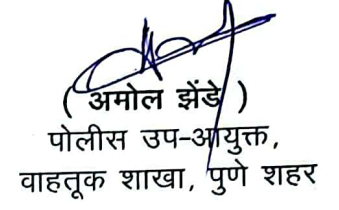 ( अमोल झेंडे )
पोलीस उप-आयुक्त,
वाहतूक शाखा, पुणे शहर